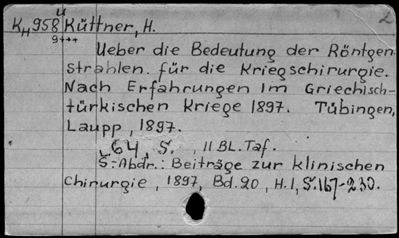 2
K_H 958 ü Küttner, H.
9+++
Ueber die Bedeutung der Röntgen
strahlen für die Kriegschirurgie.
Nach Erfahrungen im Griechisch-
türkischen Kriege 1897. Tübingen,
Laupp, 1897.
64 S., 11 BL. Taf.
S.-Abdr.: Beiträge zur klinischen
Chirurgie, 1897, Bd. 20, H. 1, S. 167-230.